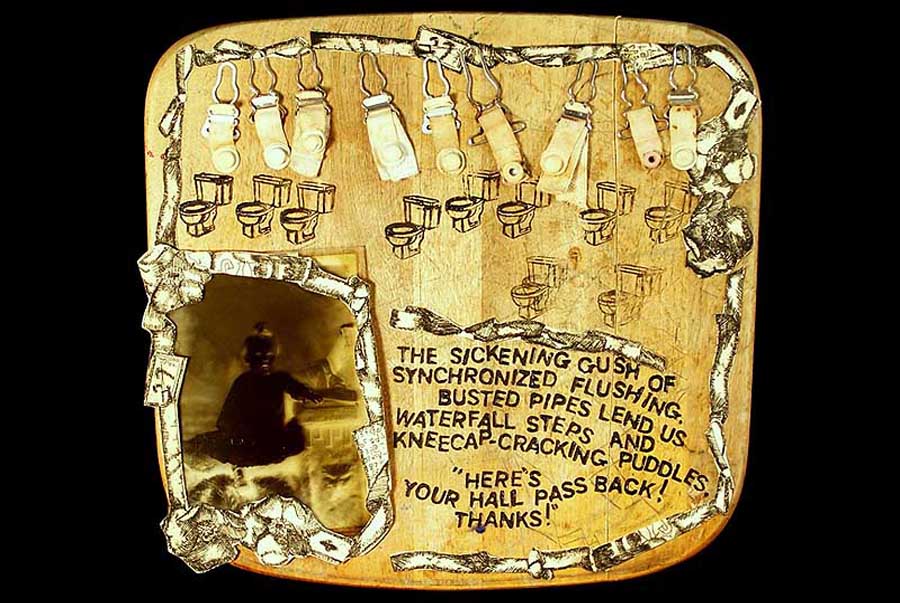 37
37
THE SICKENING GUSH OF
SYNCHRONIZED FLUSHING.
BUSTED PIPES LEND US
WATERFALL STEPS AND
KNEECAP-CRACKING PUDDLES.
"HERE'S
YOUR HALL PASS BACK!
THANKS!"